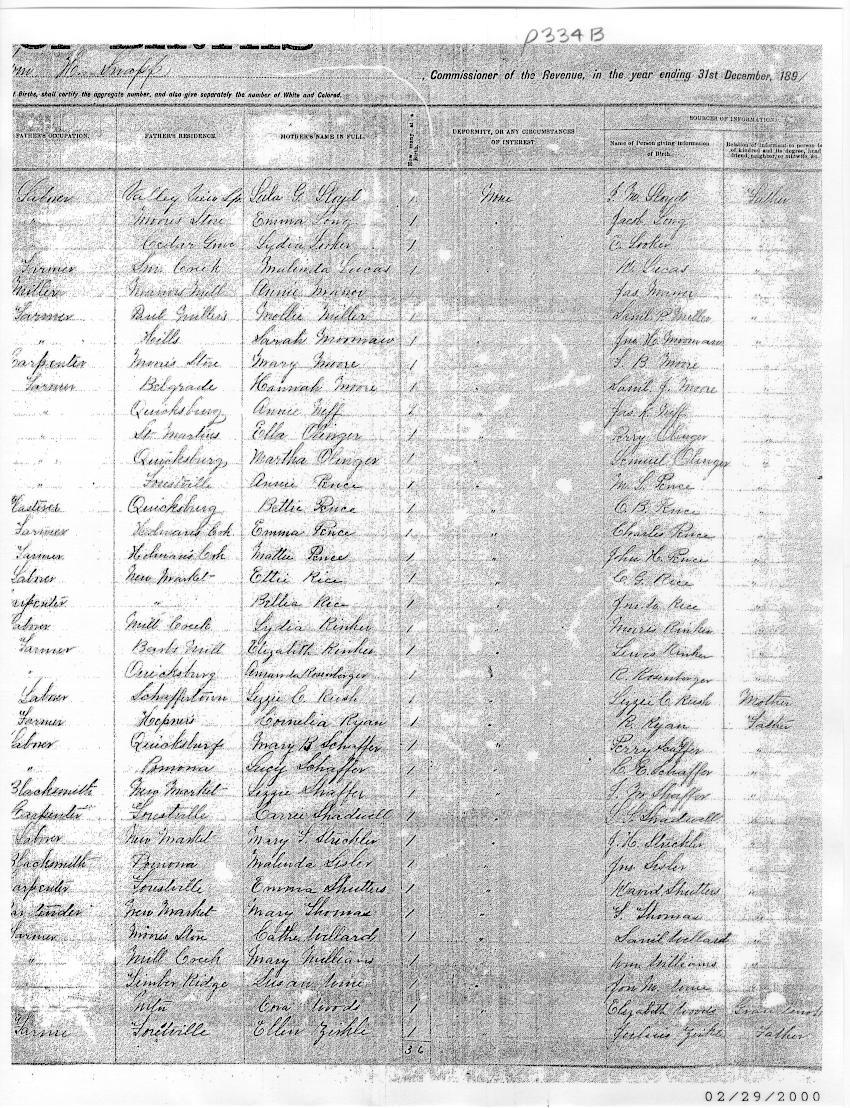 p334B
W. Knapp , Commissioner of the Revenue, in the year ending 31st December, 189
f Births, shall certify the aggregate number, and also give separately the number of White and Colored.
FATHER'S OCCUPATION. FATHER'S RESIDENCE. MOTHER'S NAME IN FULL. How many at a Birth. DEFORMITY, OR ANY CIRCUMSTANCES OF INTEREST. SOURCES OF INFORMATION
Name of Person giving information of Birth. Relation of informant to person
of kindred and its degree, head
friend, neighbor, or midwife, &c.
Labner Valley View Spr G. Lloyd 1 None Lloyd Father
" Moores Store Emma Long 1 " Jacob Long "
Cedar Grove Lydia 1 " C. "
Farmer Sm. Creek Malinda Lucas 1 " Lucas "
Miller Manors Mill Annie Manor 1 " Jas Manor "
Farmer Paul Millers Mollie Miller 1 " Saml P. Miller "
" Hills Sarah Moomaw 1 " Jno H. Moomaw "
Carpenter Moores Store Mary Moore 1 " B. Moore "
Farmer Belgrade Hannah Moore 1 " Saml. J. Moore "
" Quicksburg Annie Neff 1 " Jas K. Neff "
" St. Martins Ella Olinger 1 " Perry Olinger "
" Quicksburg Martha Olinger 1 " Samuel Olinger "
" Forestville Annie Pence 1 " M. S. Pence "
Quicksburg Bettie Pence 1 " C. B. Pence "
Farmer Emma Pence 1 " Charles Pence "
Farmer Mattie Pence 1 " John H. Pence "
Labner New Market Ettie Rice 1 " C. G. Rice "
arpenter " Rice 1 " Rice "
Labner Mill Creek Lydia Rinker 1 " Morris Rinker "
Farmer Barbs Mill Elizabeth Rinker 1 " Lewis Rinker "
" Quicksburg Amanda Rosenberger 1 " R. Rosenberger "
Labner Schaffertown Lizzie C. Rush 1 " Lizzie C. Rush Mother
Farmer Hepners Cornelia Ryan 1 " R. Ryan Father
Labner Quicksburg Mary B Schaffer 1 " Perry "
" Pomona Lucy Schaffer 1 " C. E. Schaffer "
Blacksmith New Market Lizzie Shaffer 1 " Shaffer "
Carpenter Forestville Carree Shadwell 1 " Shadwell "
Labner New Market Mary F. Strickler 1 " Strickler "
Blacksmith Pomona Malinda Sisler 1 " Jno Sisler "
arpenter Forestville Emma Shutters 1 " David Shutters "
ar tender New Market Mary Thomas 1 " Thomas "
Farmer Moores Store Cathe Willard 1 " Saml Willard "
" Mill Creek Mary Williams 1 " Wm Williams "
Timber Ridge Susan 1 " M. "
Mtn Cora Woods 1 " Elizabeth Woods
Farme Ellen Zirkle 1 " Julius Zirkle Father
36
02/29/2000